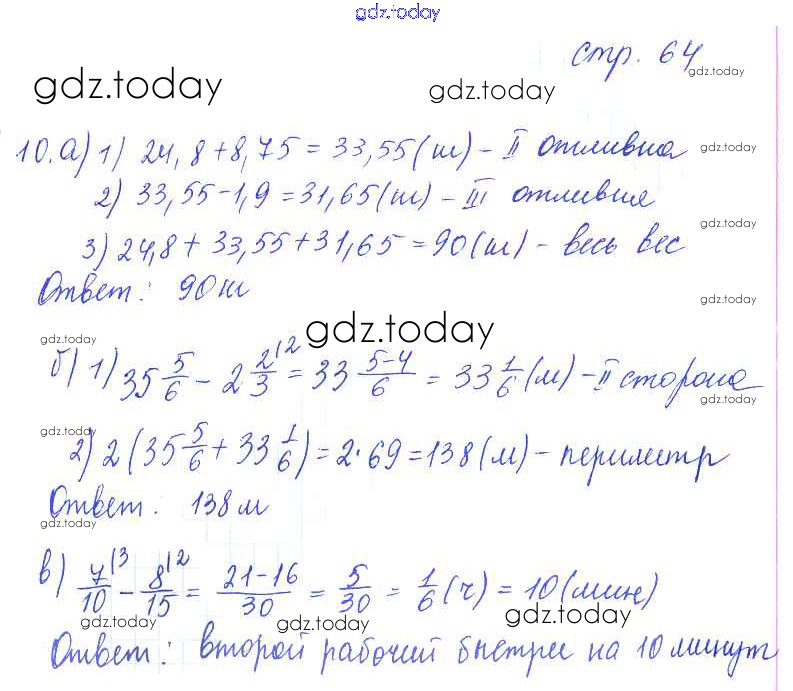 gdz.today
стр. 64
gdz.today
gdz.today gdz.today
10. а) 1) 24,8+8,75 = 33,55(т) – II отливка
gdz.today
2) 33,55-1,9 = 31,65(т) – III отливке
gdz.today
3) 24,8 + 33,55+31,65 = 90(т) – весь вес
Ответ: 90т
gdz.today
gdz.today
gdz.today
б) 1) 35 5/6 – 2 2/3 |2 = 33 (5-4)/6 = 33 1/6 (м) – II сторона
gdz.today
gdz.today
2) 2(35 5/6 + 33 1/6) = 2·69 = 138(м) – периметр
Ответ: 138м
gdz.today
в) 7/10 |3 – 8/15 |2 = (21-16)/30 = 5/30 = 1/6 (ч) = 10(мин)
gdz.today gdz.today gdz.today
Ответ: второй рабочий быстрее на 10 минут